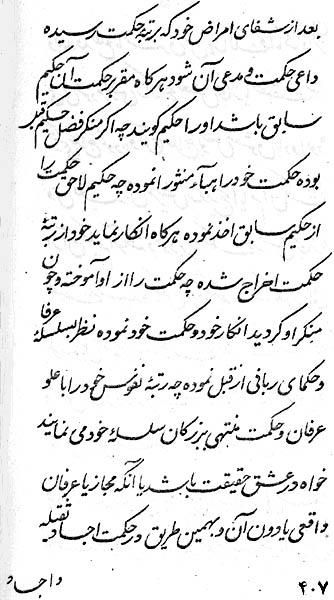 بعد از شفای امراض خود که برتبهٔ حکمت رسیده
داعی حکمت و مدعی آن شود هرگاه مقرر حکمت آن حکیم
سابق باشد او را حکیم گویند چه اگر منکر فضل حکیم قبل
بوده حکمت خود را هباء منثورا نموده چه حکیم لاحق حکمت را
از حکیم سابق اخذ نموده هرگاه انکار نماید خود از رتبهٔ
حکمت اخراج شده چه حکمت را از او آموخته و چون
منکر او گردید انکار خود و حکمت خود نموده نظر بسلسلهٔ عرفا
و حکمای ربانی از قبل نموده چه رتبهٔ نفوس خود را با علو
عرفان و حکمت منتهی ببزرگان سلسلهٔ خود می نمایند
خواه در عشق حقیقت باشد یا آنکه مجاز یا عرفان
واقعی یا دون آن و بهمین طریق در حکمت اجساد ثقیله
و اجساد
۴۰۷